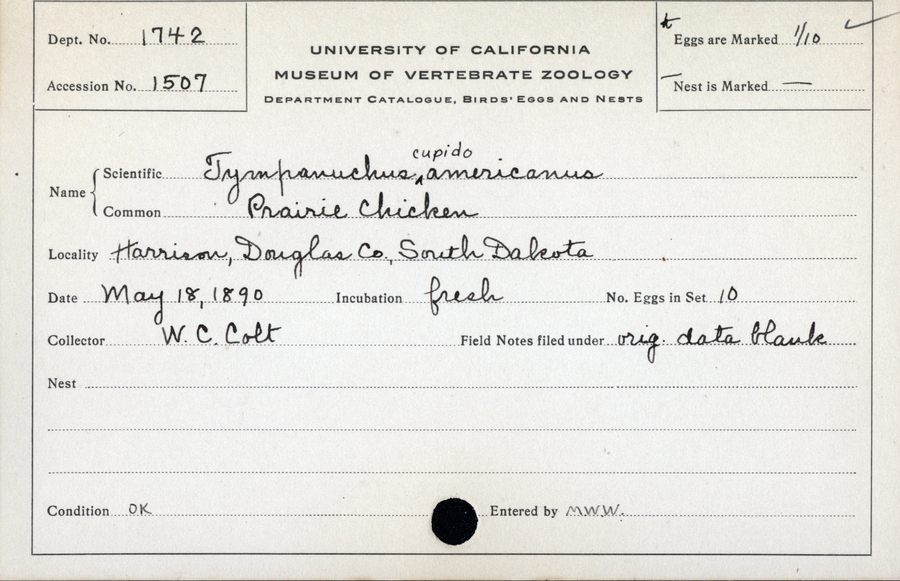 Dept. No. 1742
Accession No. 1507
UNIVERSITY OF CALIFORNIA
MUSEUM OF VERTEBRATE ZOOLOGY
DEPARTMENT CATALOGUE, BIRDS' EGGS AND NESTS
Eggs are Marked 1/10 ✓
Nest is Marked —
cupido
Name { Scientific Tympanuchus ‸ americanus
Common Prairie Chicken
Locality Harrison, Douglas Co., South Dakota
Date May 18, 1890 Incubation fresh No. Eggs in Set 10
Collector W. C. Colt Field Notes filed under orig. data blank
Nest
Condition OK Entered by MWW.